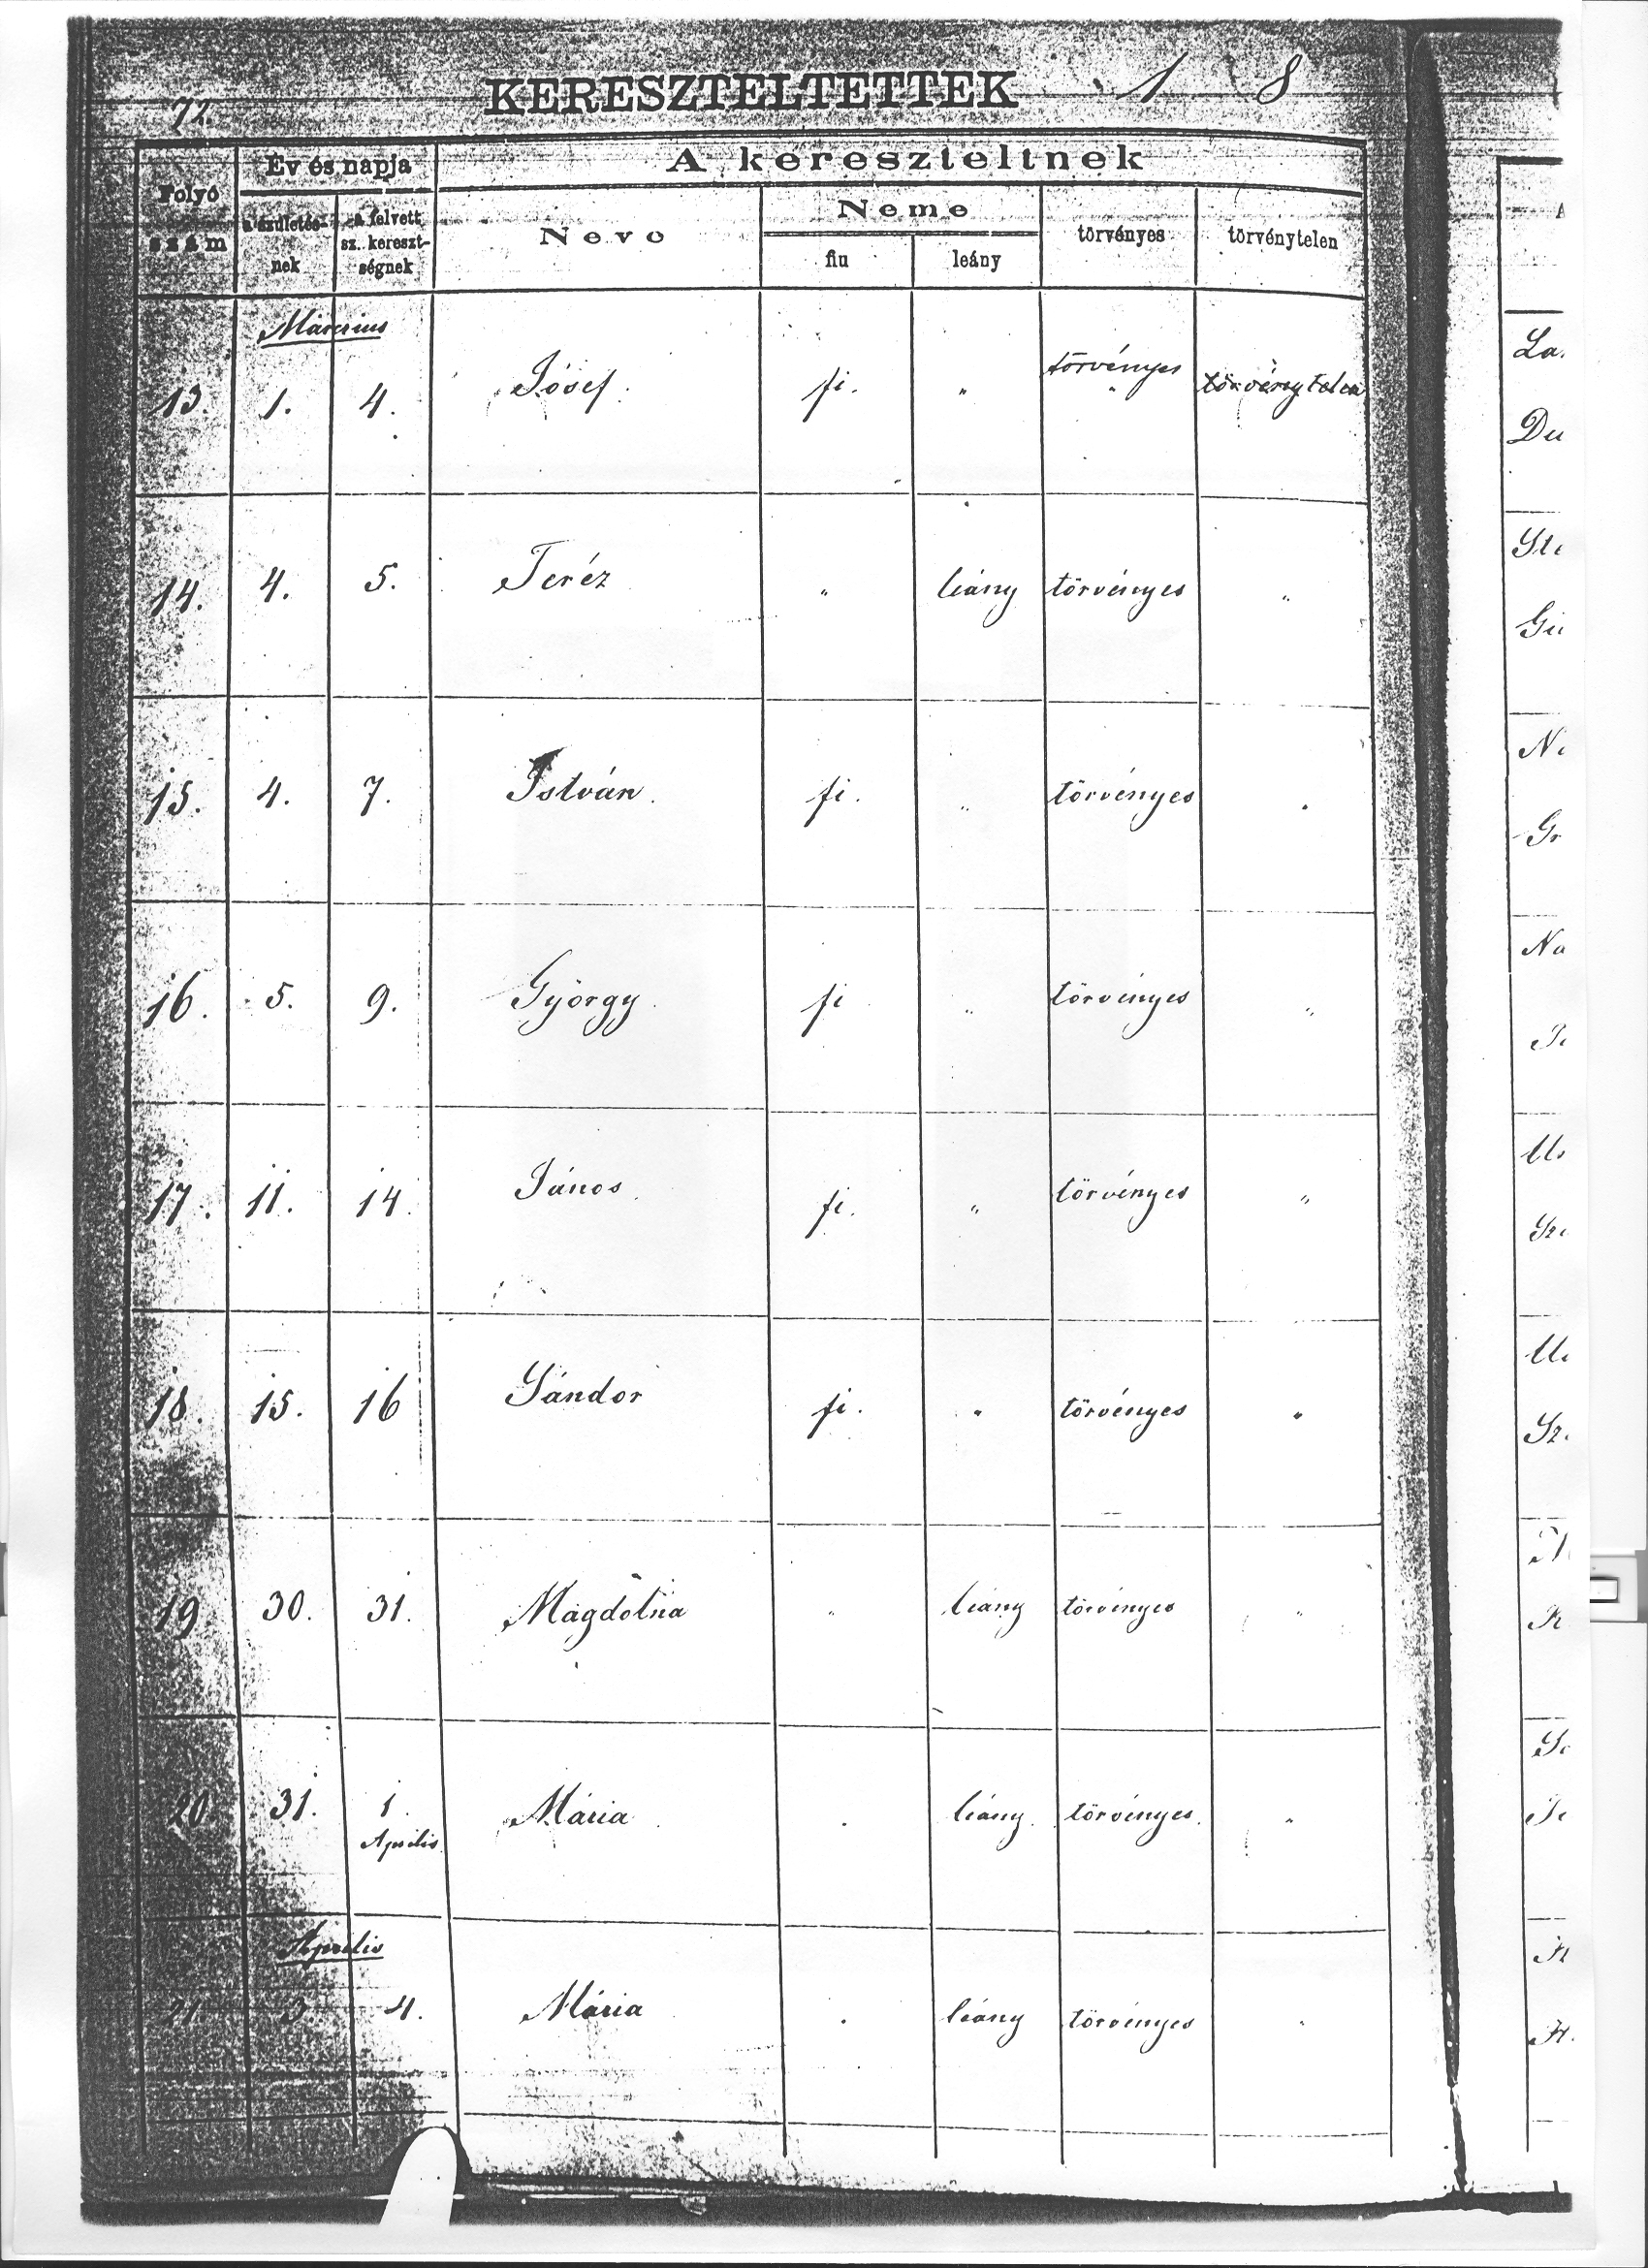 72. KERESZTELTETTEK 1 8
Folyó szám
Év és napja
a születés-nek
a felvett sz. kereszt-ségnek
A kereszteltnek
Neve
Neme
fiu
leány
törvényes
törvénytelen
Márczius
13. 1. 4. Jósef. fi. " törvényes " törvénytelen
14. 4. 5. Teréz " leány törvényes "
15. 4. 7. István. fi. " törvényes "
16. 5. 9. György. fi " törvényes "
17. 11. 14. János. fi. " törvényes "
18. 15. 16 Sándor fi. " törvényes "
19 30. 31. Magdolna " leány törvényes "
20 31. 1. Április Mária " leány. törvényes. "
Április
21 3. 4. Mária " leány törvényes "
La
Du
Ste
Gu
Gr
Na
Sz
Sz
K
H
H.